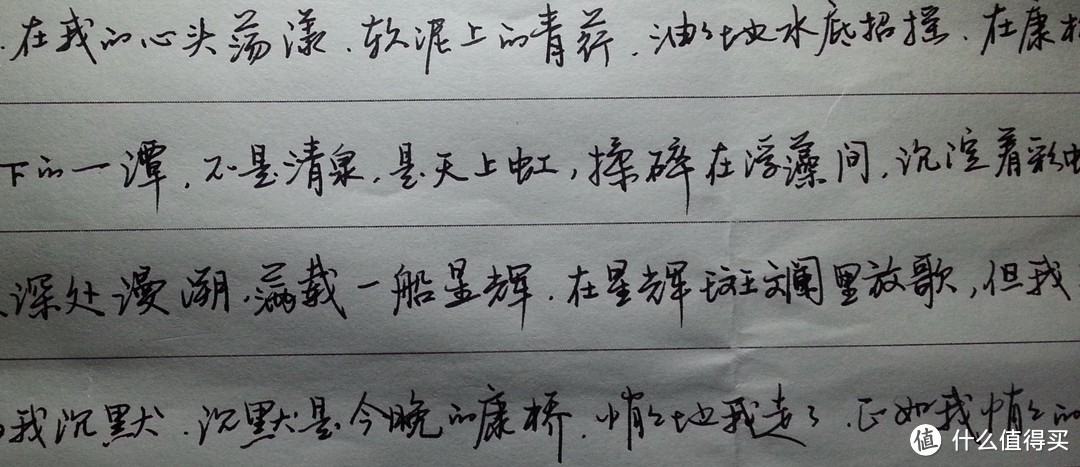 .在我的心头荡漾.软泥上的青荇.油々地水底招摇.在康
下的一潭,不是清泉,是天上虹,揉碎在浮藻间,沉淀着彩
深处漫溯.满载一船星辉.在星辉斑斓里放歌,但我
我沉默.沉默是今晚的康桥.悄々地我走了.正如我悄々的
值 什么值得买